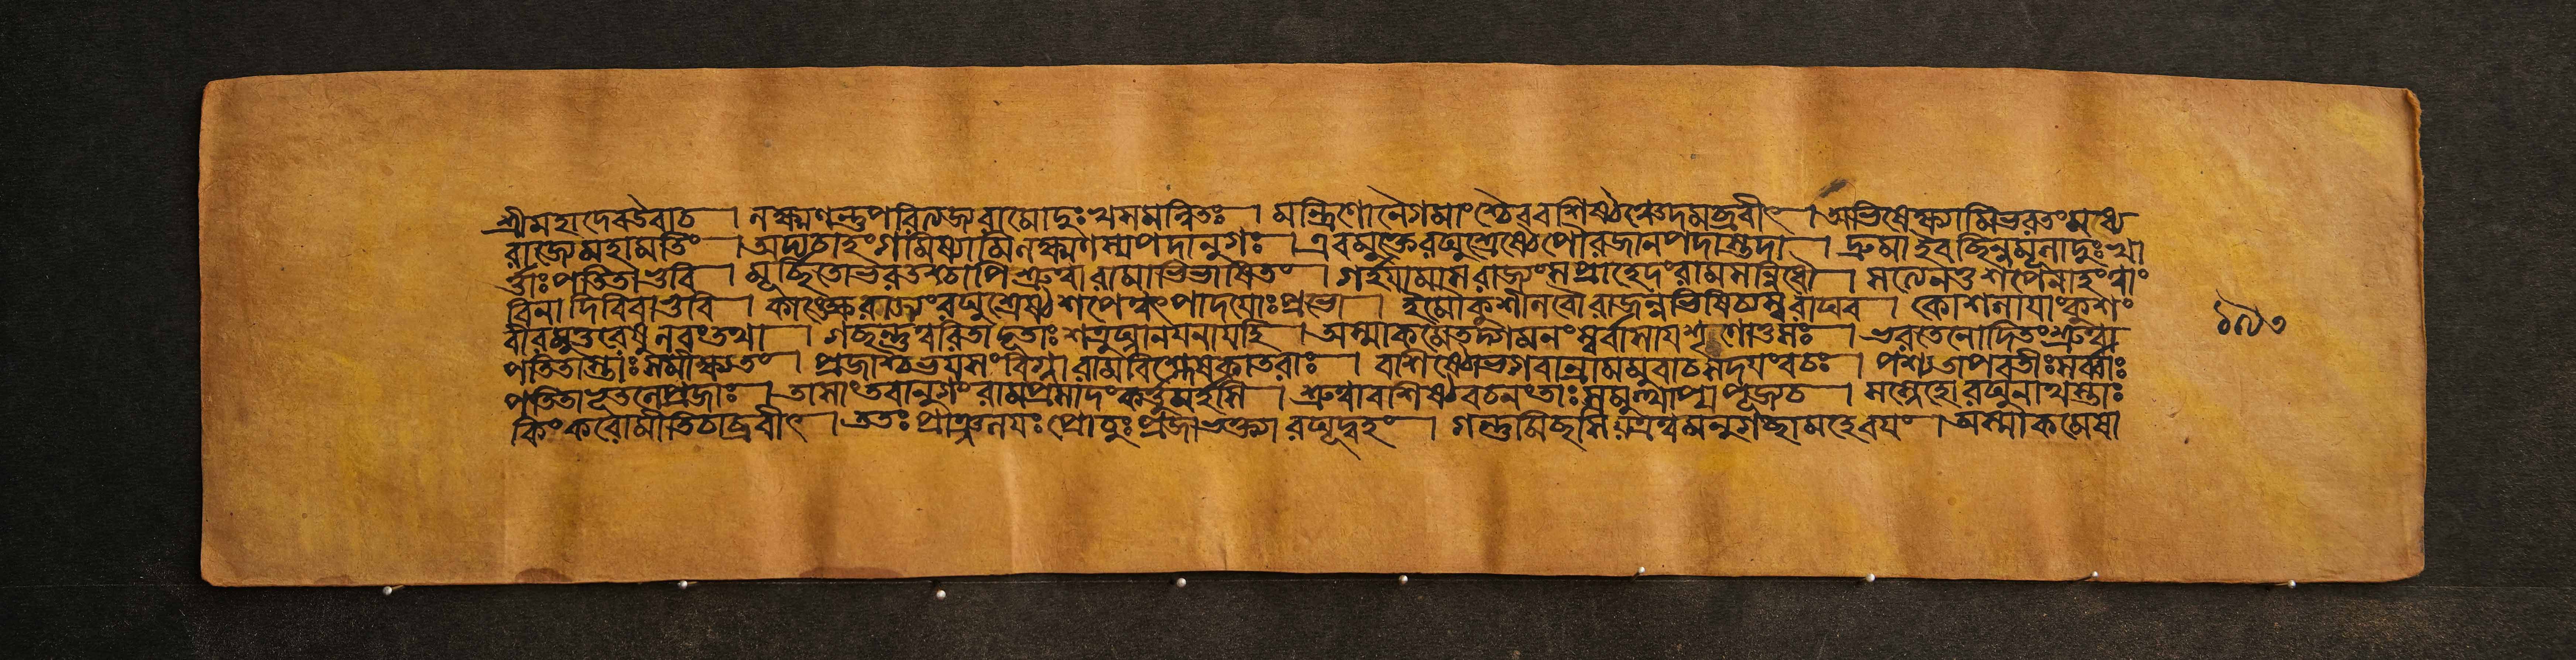 শ্রীমহাদেবউবাচ । লক্ষ্মণন্তুপরিত্যজ্যরামোদুঃখসমন্বিতঃ । মন্ত্রিণোনৈগমাংশ্চৈববশিষ্ঠঞ্চেদমব্রবীৎ । অভিষেক্ষ্যামিভরতংমধ্যে
রাজ্যেমহামতিং । অদ্যচাহংগমিষ্যামিলক্ষ্মণস্যপদানুগঃ । এবমুক্তেরঘুশ্রেষ্ঠেপৌরজানপদাস্তদা । দ্রুমাইবছিন্নমূলাদুঃখা
র্ত্তাঃপতিতাভুবি । মূর্চ্ছিতোভরতশ্চাপিশ্রুত্বারামাভিভাষিতং । গর্হয়ামাসরাজ্যংসপ্রাহেদংরামসন্নিধৌ । সত্যেনতুশপেনাহংত্বাং
বিনাদিবিবাভুবি । কাংক্ষেরাজ্যংরঘুশ্রেষ্ঠশপেত্বৎপাদয়োঃপ্রভো । ইমৌকুশীলবৌরাজন্নভিষিঞ্চস্বরাঘব । কোশলায়াংকুশং
বীরমুত্তরেষুলবংতথা । গচ্ছন্তুত্বরিতাদূতাঃশত্রুঘ্নানয়নায়হি । অস্মাকমেতদ্গমনংস্বর্বাসায়শৃণোতুসঃ । ভরতেনোদিতংশ্রুত্বা
পতিতাস্তাঃসমীক্ষ্যতং । প্রজাশ্চভয়সংবিগ্নারামবিশ্লেষকাতরাঃ । বাশিষ্ঠোভগবান্রামমুবাচসদয়ংবচঃ । পশ্যতাপবতীঃসর্ব্বাঃ
পতিতাভূতলেপ্রজাঃ । তাসাংভাবানুগংরামপ্রসাদংকর্ত্তুমর্হসি । শ্রুত্বাবশিষ্ঠবচনংতাঃসমুত্থাপ্যপূজ্যচ । সস্নেহোরঘুনাথস্তাঃ
কিংকরোমীতিচাব্রবীৎ । ততঃপ্রাঞ্জলয়ঃপ্রোচুঃপ্রজাভক্ত্যারঘূদ্বহং । গন্তুমিচ্ছসিযত্রত্বমনুগচ্ছামহেবয়ং । অস্মাকমেষা